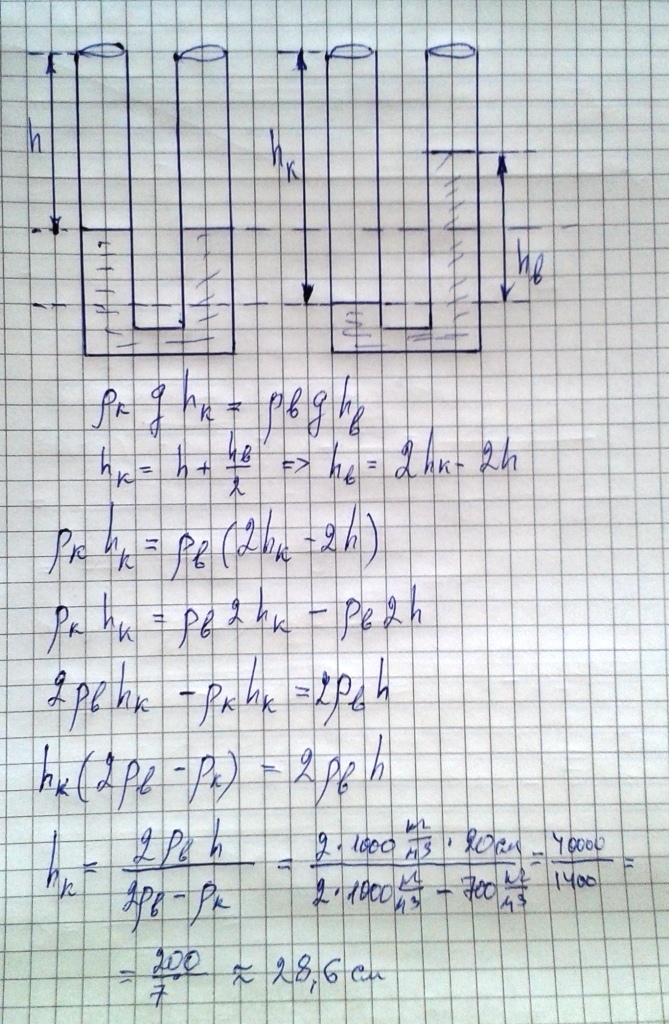 h
hк
hв
ρк g hк = ρв g hв
hк = h + hв/2 => hв = 2hк - 2h
ρк hк = ρв (2hк - 2h)
ρк hк = ρв 2hк - ρв 2h
2ρв hк - ρк hк = 2ρв h
hк (2ρв - ρк) = 2ρв h
hк = 2ρв h / 2ρв - ρк = 2·1000 кг/м3 · 20 см / 2·1000 кг/м3 - 700 кг/м3 = 40000 / 1400 =
= 200/7 ≈ 28,6 см